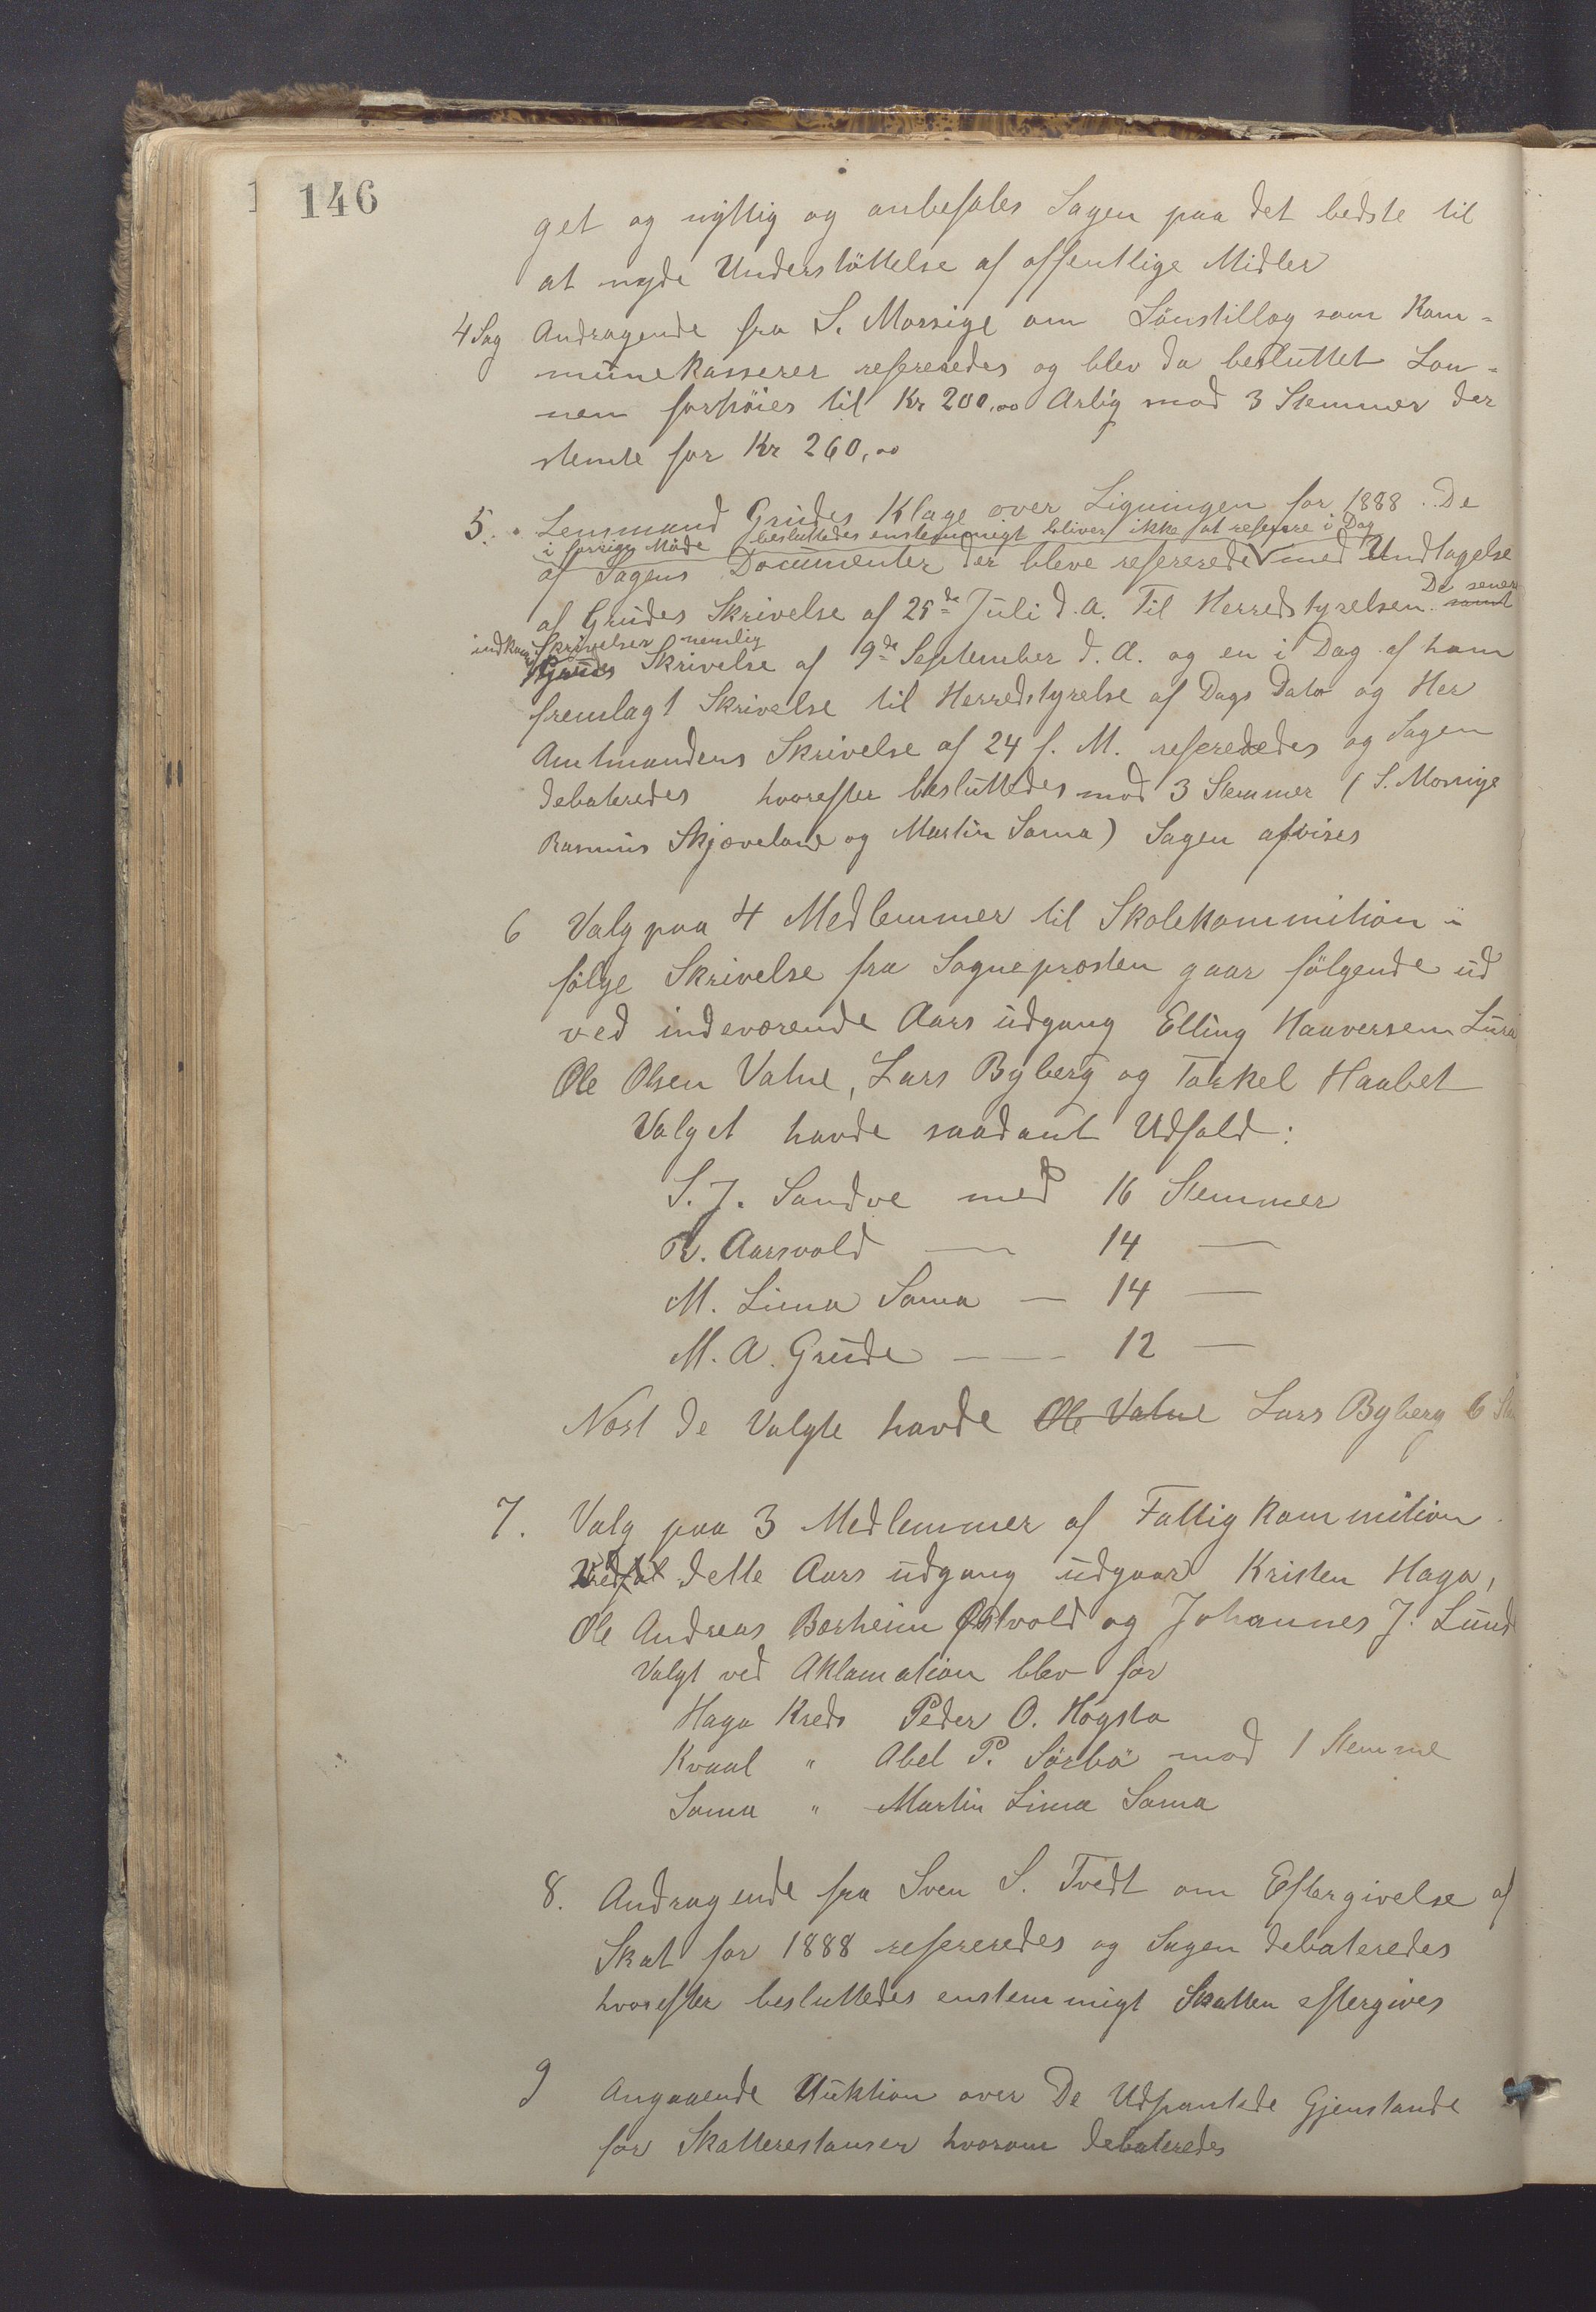 146
get og nyttig og anbefales Sagen paa det bedste til
at nyde Understöttelse af offentlige Midler
4 Sag Andragende fra S. Morsige om Lönstillæg som Kom-
munekasserer refereredes og blev da besluttet Løn-
nen forhöies til Kr 200,00 Arlig mod 3 Stemmer der
stemte for Kr 260,00
5. Lensmand Grudes Klage over Ligningen for 1888. De
i forrige Möde besluttedes enstemmigt bliver ikke at referere i Dag
af Sagens Documenter der bleve refererede med Undtagelse
af Grudes Skrivelse af 25de Juli d. A. Til Herredstyrelsen. samt De senere
indkom. Skrivelser nemlig
Skrivelse af 9de September d. A. og en i Dag af ham
fremlagt Skrivelse til Herredstyrelse af Dags Dato og Her
Amtmandens Skrivelse af 24 f. M. refereredes og Sagen
debateredes hvorefter besluttedes mod 3 Stemmer (S. Morsige
Rasmus Skjæveland og Martin Soma) Sagen afvises
6 Valg paa 4 Medlemmer til Skolekommition i
fölge Skrivelse fra Sognepresten gaar fölgende ud
ved indeværende Aars udgang Elling Haaversen Lura
Ole Olsen Vatne, Lars Byberg og Torkel Haabet
Valget havde saadant Udfald:
S. J. Sandve med 16 Stemmer
R. Aarsvold — 14 —
M. Lima Soma — 14 —
M. A. Grude — 12 —
Næst de Valgte havde Ole Vatne Lars Byberg 6 St
7. Valg paa 3 Medlemmer af Fattigkommition.
Ved dette Aars udgang udgaar Kristen Haga,
Ole Andreas Bærheim Østvold og Johannes J. Lunde
Valgt ved Aklamation blev for
Haga Kreds Peder O. Høgsta
Kvaal " Abel P. Sörbö mod 1 Stemme
Soma " Martin Lima Soma
8. Andragende fra Sven S. Tvedt om Eftergivelse af
Skat for 1888 refereredes og Sagen debateredes
hvorefter besluttedes enstemmigt Skatten eftergives
9 Angaaende Auktion over De Udpantede Gjenstande
for Skatterestanser hvorom debateredes